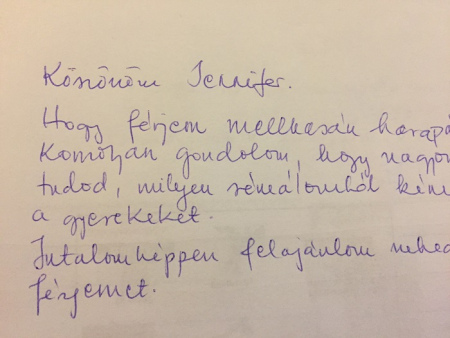 Köszönöm Jennifer.
Hogy férjem mellkasán harapá
Komolyan gondolom, hogy nagyon
tudod, milyen rémálomból kém
a gyerekeket.
Jutalomképpen felajánlom neked
férjemet.